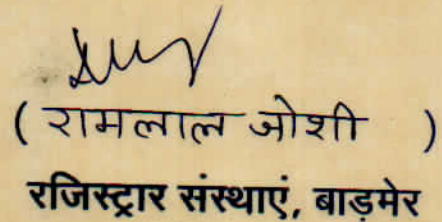 ( रामलाल जोशी )
रजिस्ट्रार संस्थाएं, बाड़मेर